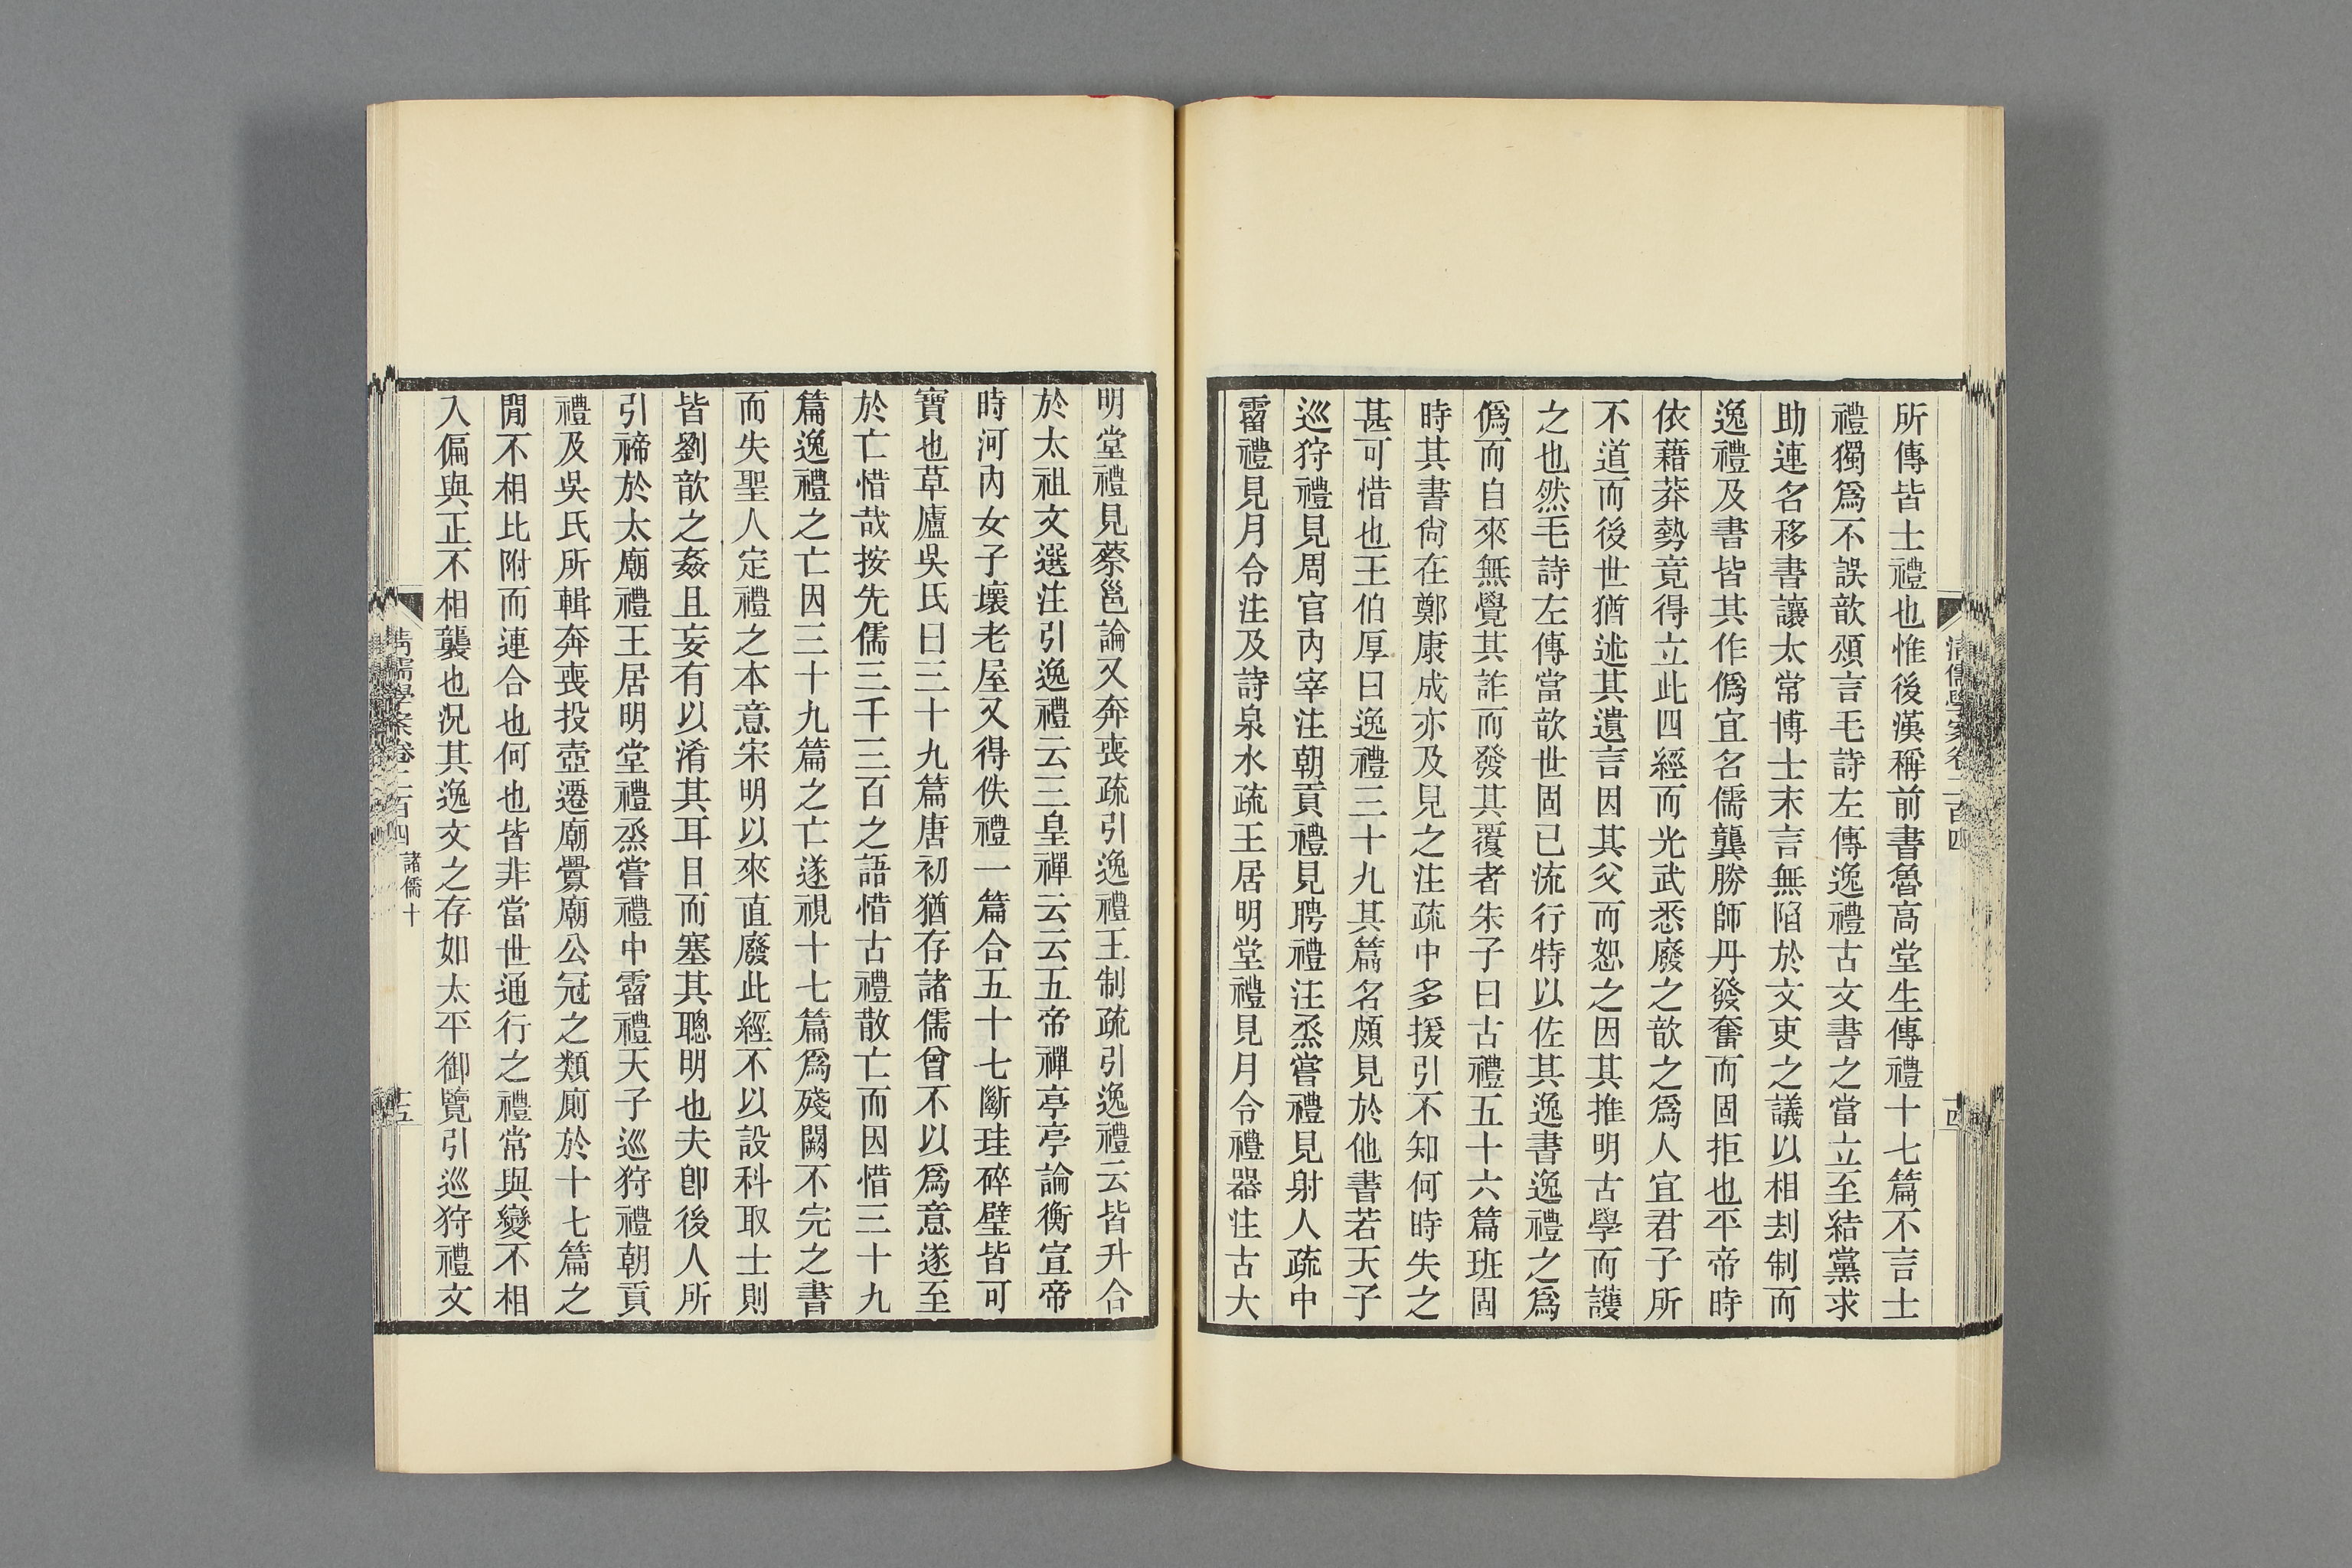 清儒學案卷二百四
十四
所傳皆士禮也惟後漢稱前書魯高堂生傳禮十七篇不言士
禮獨爲不誤歆頌言毛詩左傳逸禮古文書之當立至結黨求
助連名移書讓太常博士末言無陷於文吏之議以相刦制而
逸禮及書皆其作僞宜名儒龔勝師丹發奮而固拒也平帝時
依藉莽勢竟得立此四經而光武悉廢之歆之爲人宜君子所
不道而後世猶述其遺言因其父而恕之因其推明古學而護
之也然毛詩左傳當歆世固已流行特以佐其逸書逸禮之爲
僞而自來無覺其詐而發其覆者朱子曰古禮五十六篇班固
時其書尙在鄭康成亦及見之注疏中多援引不知何時失之
甚可惜也王伯厚曰逸禮三十九其篇名頗見於他書若天子
巡狩禮見周官內宰注朝貢禮見聘禮注烝嘗禮見射人疏中
霤禮見月令注及詩泉水疏王居明堂禮見月令禮器注古大
明堂禮見蔡邕論又奔喪疏引逸禮王制疏引逸禮云皆升合
於太祖文選注引逸禮云三皇禪云云五帝禪亭亭論衡宣帝
時河內女子壞老屋又得佚禮一篇合五十七斷珪碎璧皆可
寶也草廬吳氏曰三十九篇唐初猶存諸儒曾不以爲意遂至
於亡惜哉按先儒三千三百之語惜古禮散亡而因惜三十九
篇逸禮之亡因三十九篇之亡遂視十七篇爲殘闕不完之書
而失聖人定禮之本意宋明以來直廢此經不以設科取士則
皆劉歆之姦且妄有以淆其耳目而塞其聰明也夫卽後人所
引禘於太廟禮王居明堂禮烝嘗禮中霤禮天子巡狩禮朝貢
禮及吳氏所輯奔喪投壺遷廟釁廟公冠之類廁於十七篇之
閒不相比附而連合也何也皆非當世通行之禮常與變不相
入偏與正不相襲也況其逸文之存如太平御覽引巡狩禮文
清儒學案卷二百四
諸儒十
十五